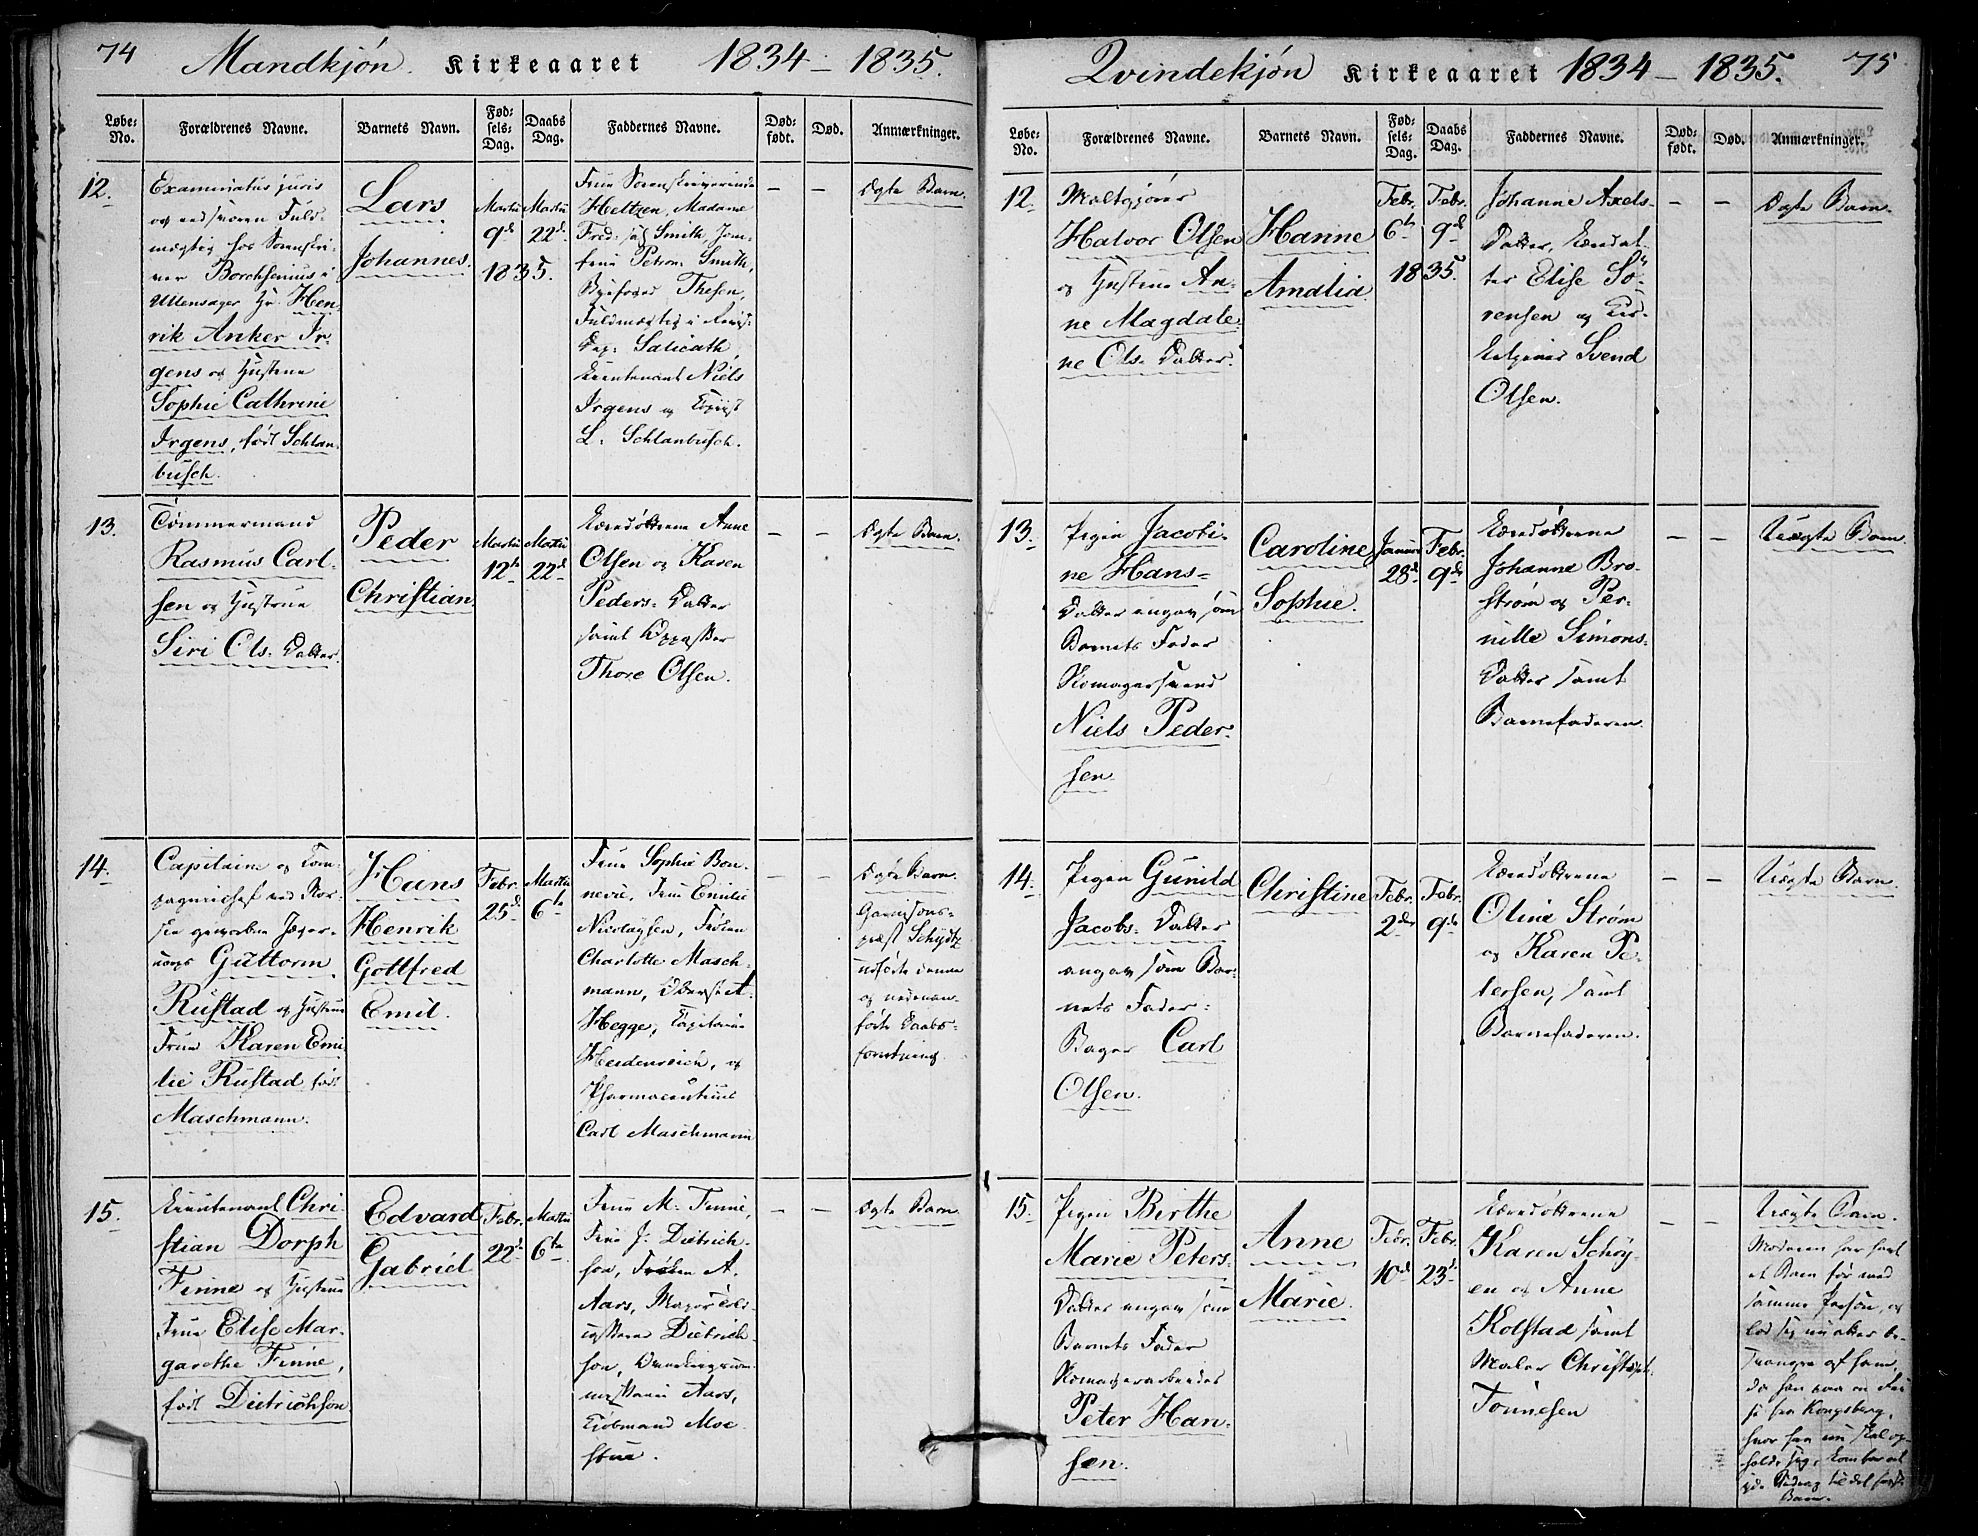 74
Mandkjön. Kirkeaaret 1834 – 1835.
Løbe-No. Forældrenes Navne. Barnets Navn. Fødsels-Dag. Daabs Dag. Faddernes Navne. Dødfødt. Død. Anmærkninger.
12.
Examinatus juris
og
mægtig hos Sorenskri-
ver Borchsenius i
Ullensager Hr Hen-
rik Anker Ir-
gens og Hustrue
Sophie Cathrine
Irgens, født Schlan-
busch.
Lars
Johannes.
Martii
9d
Martii
22d
1835.
Frue Sorenskriverinde
Heltzen, Madame
Smith, Jom-
frue Petron: Smith,
Byefoged Thesen,
Fuldmægtig i
Dep: Salicath,
Lieutenant Niels
Irgens og Copiist
L: Schlanbusch.
– –
Ægte Barn.
13.
Tømmermand
Rasmus Carl-
sen og Hustrue
Siri Ols: Datter.
Peder
Christian.
Martii
12te
Martii
22d
Anne
Olsen og Karen
Peders: Datter
samt Oppasser
Thore Olsen.
– –
Ægte Barn.
14.
Capitaine og Com-
pagniechef ved Nor-
ske gevorbne Jæger-
corps Guttorm
Rustad og Hustrue
Frue Karen Emi-
lie Rustad, født
Maschmann.
Hans
Henrik
Gottfred
Emil.
Febr.
25d
Martii
6te
Frue Sophie Bon-
nevie, Frue Emilie
Nicolaysen, Frøken
Charlotte Masch-
mann, Oberst A.
Hegge, Capitaine
Heidenreich, og
Pharmaceuticus
Carl Maschmann
– –
Ægte Barn.
Garnisons-
præst Schydtz
udførte denne
og nedenan-
førte Daabs-
forretning.
15.
Lieutenant Chri-
stian Dorph
Finne og Hustrue
Frue Elise Mar-
garethe Finne,
født Dietrichson
Edvard
Gabriel
Febr.
22d
Martii
6te
Frue M. Finne,
Frue J: Dietrich-
son, Frøken A.
Aars, Major
Dietrich-
son,
Aars,
Kjøbmand Moe-
stue.
– –
Ægte Barn.
Qvindekjön Kirkeaaret 1834 – 1835. 75
Løbe-No. Forældrenes Navne. Barnets Navn. Fødsels-Dag. Daabs Dag. Faddernes Navne. Dødfødt. Død. Anmærkninger.
12.
Maltgjører
Halvor Olsen
og Hustrue An-
ne Magdale-
ne Ols: Datter.
Hanne
Amalia.
Febr.
6te
Febr.
9d
1835.
Johanne Axels-
Datter,
Elise Sö-
rensen og
Svend
Olsen.
– –
Ægte Barn.
13.
Pigen Jacobi-
ne Hans-
Datter angav som
Barnets Fader
Skomagersvend
Niels Peder-
sen.
Caroline
Sophie.
Januar
28d
Febr.
9de
Johanne Bro-
strøm og Per-
nille Simons-
Datter samt
Barnefaderen.
– –
Uægte Barn.
14.
Pigen Gunild
Jacobs: Datter
angav som Bar-
nets Fader:
Bager Carl
Olsen.
Christine
Febr.
2den
Febr.
9de
Oline Strøm
og Karen Pe-
tersen, samt
Barnefaderen.
– –
Uægte Barn.
15.
Pigen Birthe
Marie Peters-
Datter angav som
Barnets Fader
Skomagerarbeider
Peter Han-
sen.
Anne
Marie.
Febr.
10d
Febr.
23d
Karen Schöy-
en og Anne
Kolstad samt
Maler
Tönnesen
– –
Uægte Barn.
Moderen har havt
et Barn før med
samme Person, og
lod sig nu atter be-
svangre af ham,
da han paa en
fra Kongsberg,
hvor han nu skal op-
holde sig, kom her
Barn.